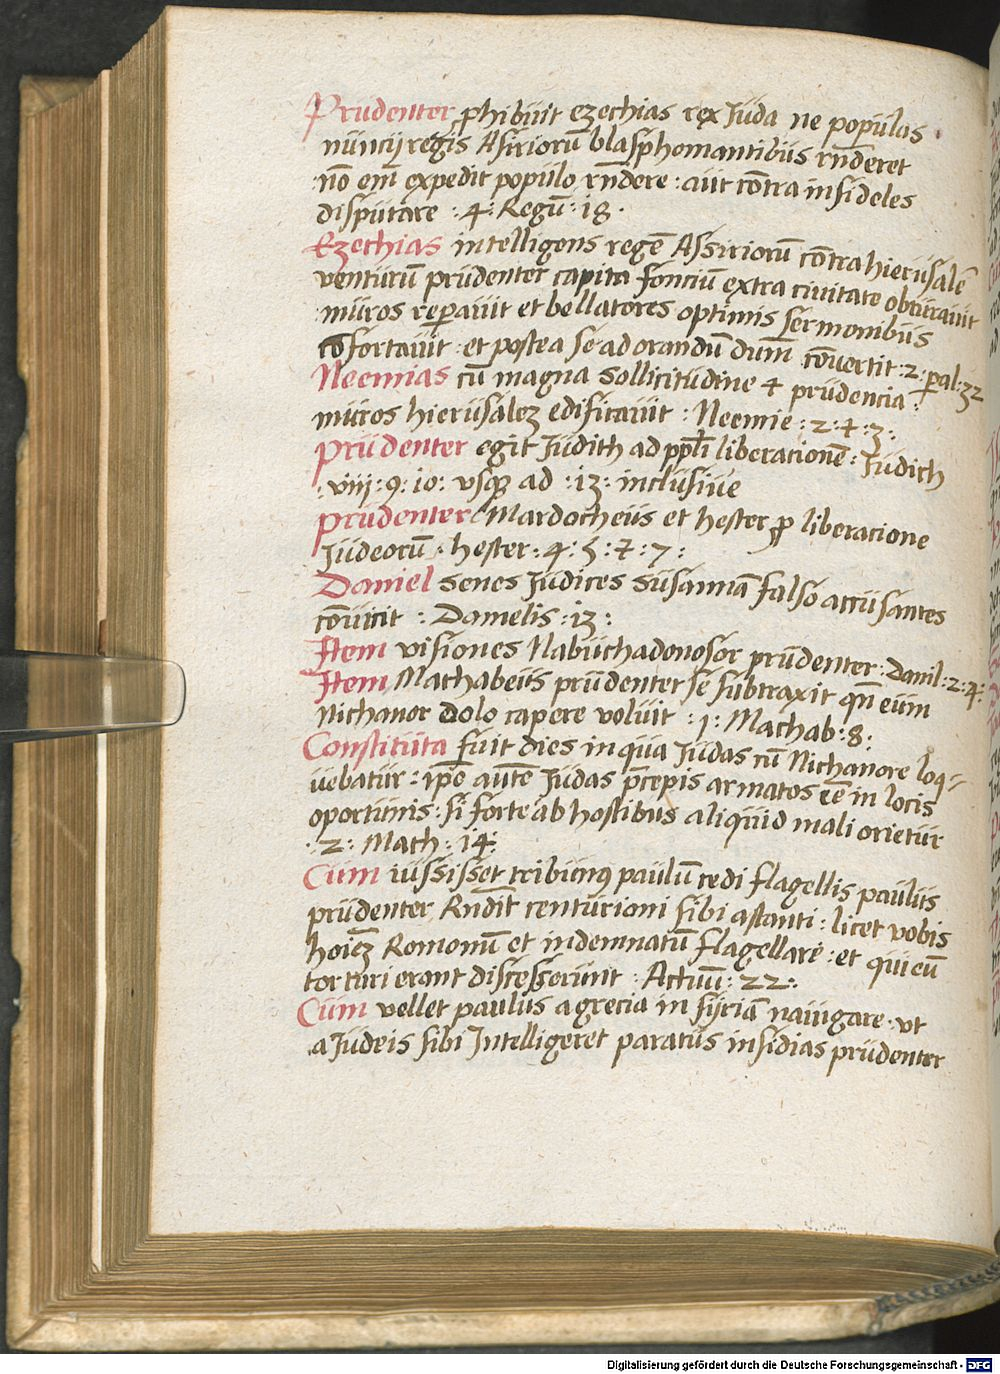 Prudenter ꝓhibuit ezechias rex Juda ne populus
nuncij regis Asiriorū blasphemantibus rn̄deret
nō em̄ expedit populo rn̄dere : aut cōtra infideles
disputare : 4 : Regū : 18 .
Ezechias intelligens regē Assiriorū cōtra hierusalē
venturū prudenter capita fonciū extra ciuitatē obturauit
muros reparauit et bellatores optimis sermonibus
cōfortauit : et postea se ad orandū dum̄ cōuertit : 2 : pal : 32
Neemias cū magna sollicitudine et prudencia :
muros hierusalez edificauit : Neemie : 2 : et : 3 :
Prudenter egit Judith ad ppl̄i liberationē : Judith
: viij : 9 : io : vsqz ad : i3 : inclusiue
Prudenter Mardocheus et hester ꝓ liberacione
Judeorū . hester : 4 : 5 : et : 7 :
Daniel senes Judices susannā falso accusantes
cōuicit : Danielis : i3 :
Item visiones Nabuchadonosor prudenter : Daniel : 2 : 4 :
Item Machabeus prudenter se subtraxit qn̄ eum
Nichanor dolo capere voluit : 1 : Machab : 8 :
Constituta fuit dies in qua Judas cū Nichanore loq-
uebatur : ip̄e autē Judas p̄cepis armatos eē in locis
oportunis : si forte ab hostibus aliquid mali orietur
. 2 : Mach : i4 :
Cum iussisset tribunꝰ paulū cedi flagellis paulus
prudenter Rn̄dit centurioni sibi astanti : licet vobis
hoiez Romonū et indemnatū flagellare : et qui eū
torturi erant discesserunt : Actuū : 22 :
Cum vellet paulus a grecia in sijriā nauigare . vt
a Judeis sibi Intelligeret paratus insidias prudenter
Digitalisierung gefördert durch die Deutsche Forschungsgemeinschaft - DFG